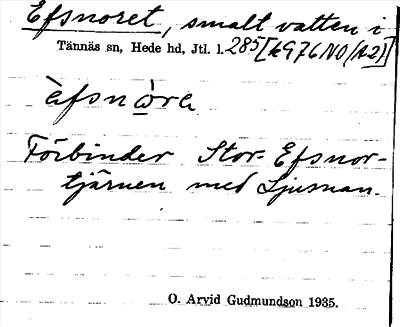 Efsnoret, smalt vatten i
Tännäs sn, Hede hd, Jtl. l. 285 [k976NO(k2)]
èfsnòra
Förbinder Stor-Efsnor-
tjärnen med Ljusnan.
O. Arvid Gudmundson 1935.